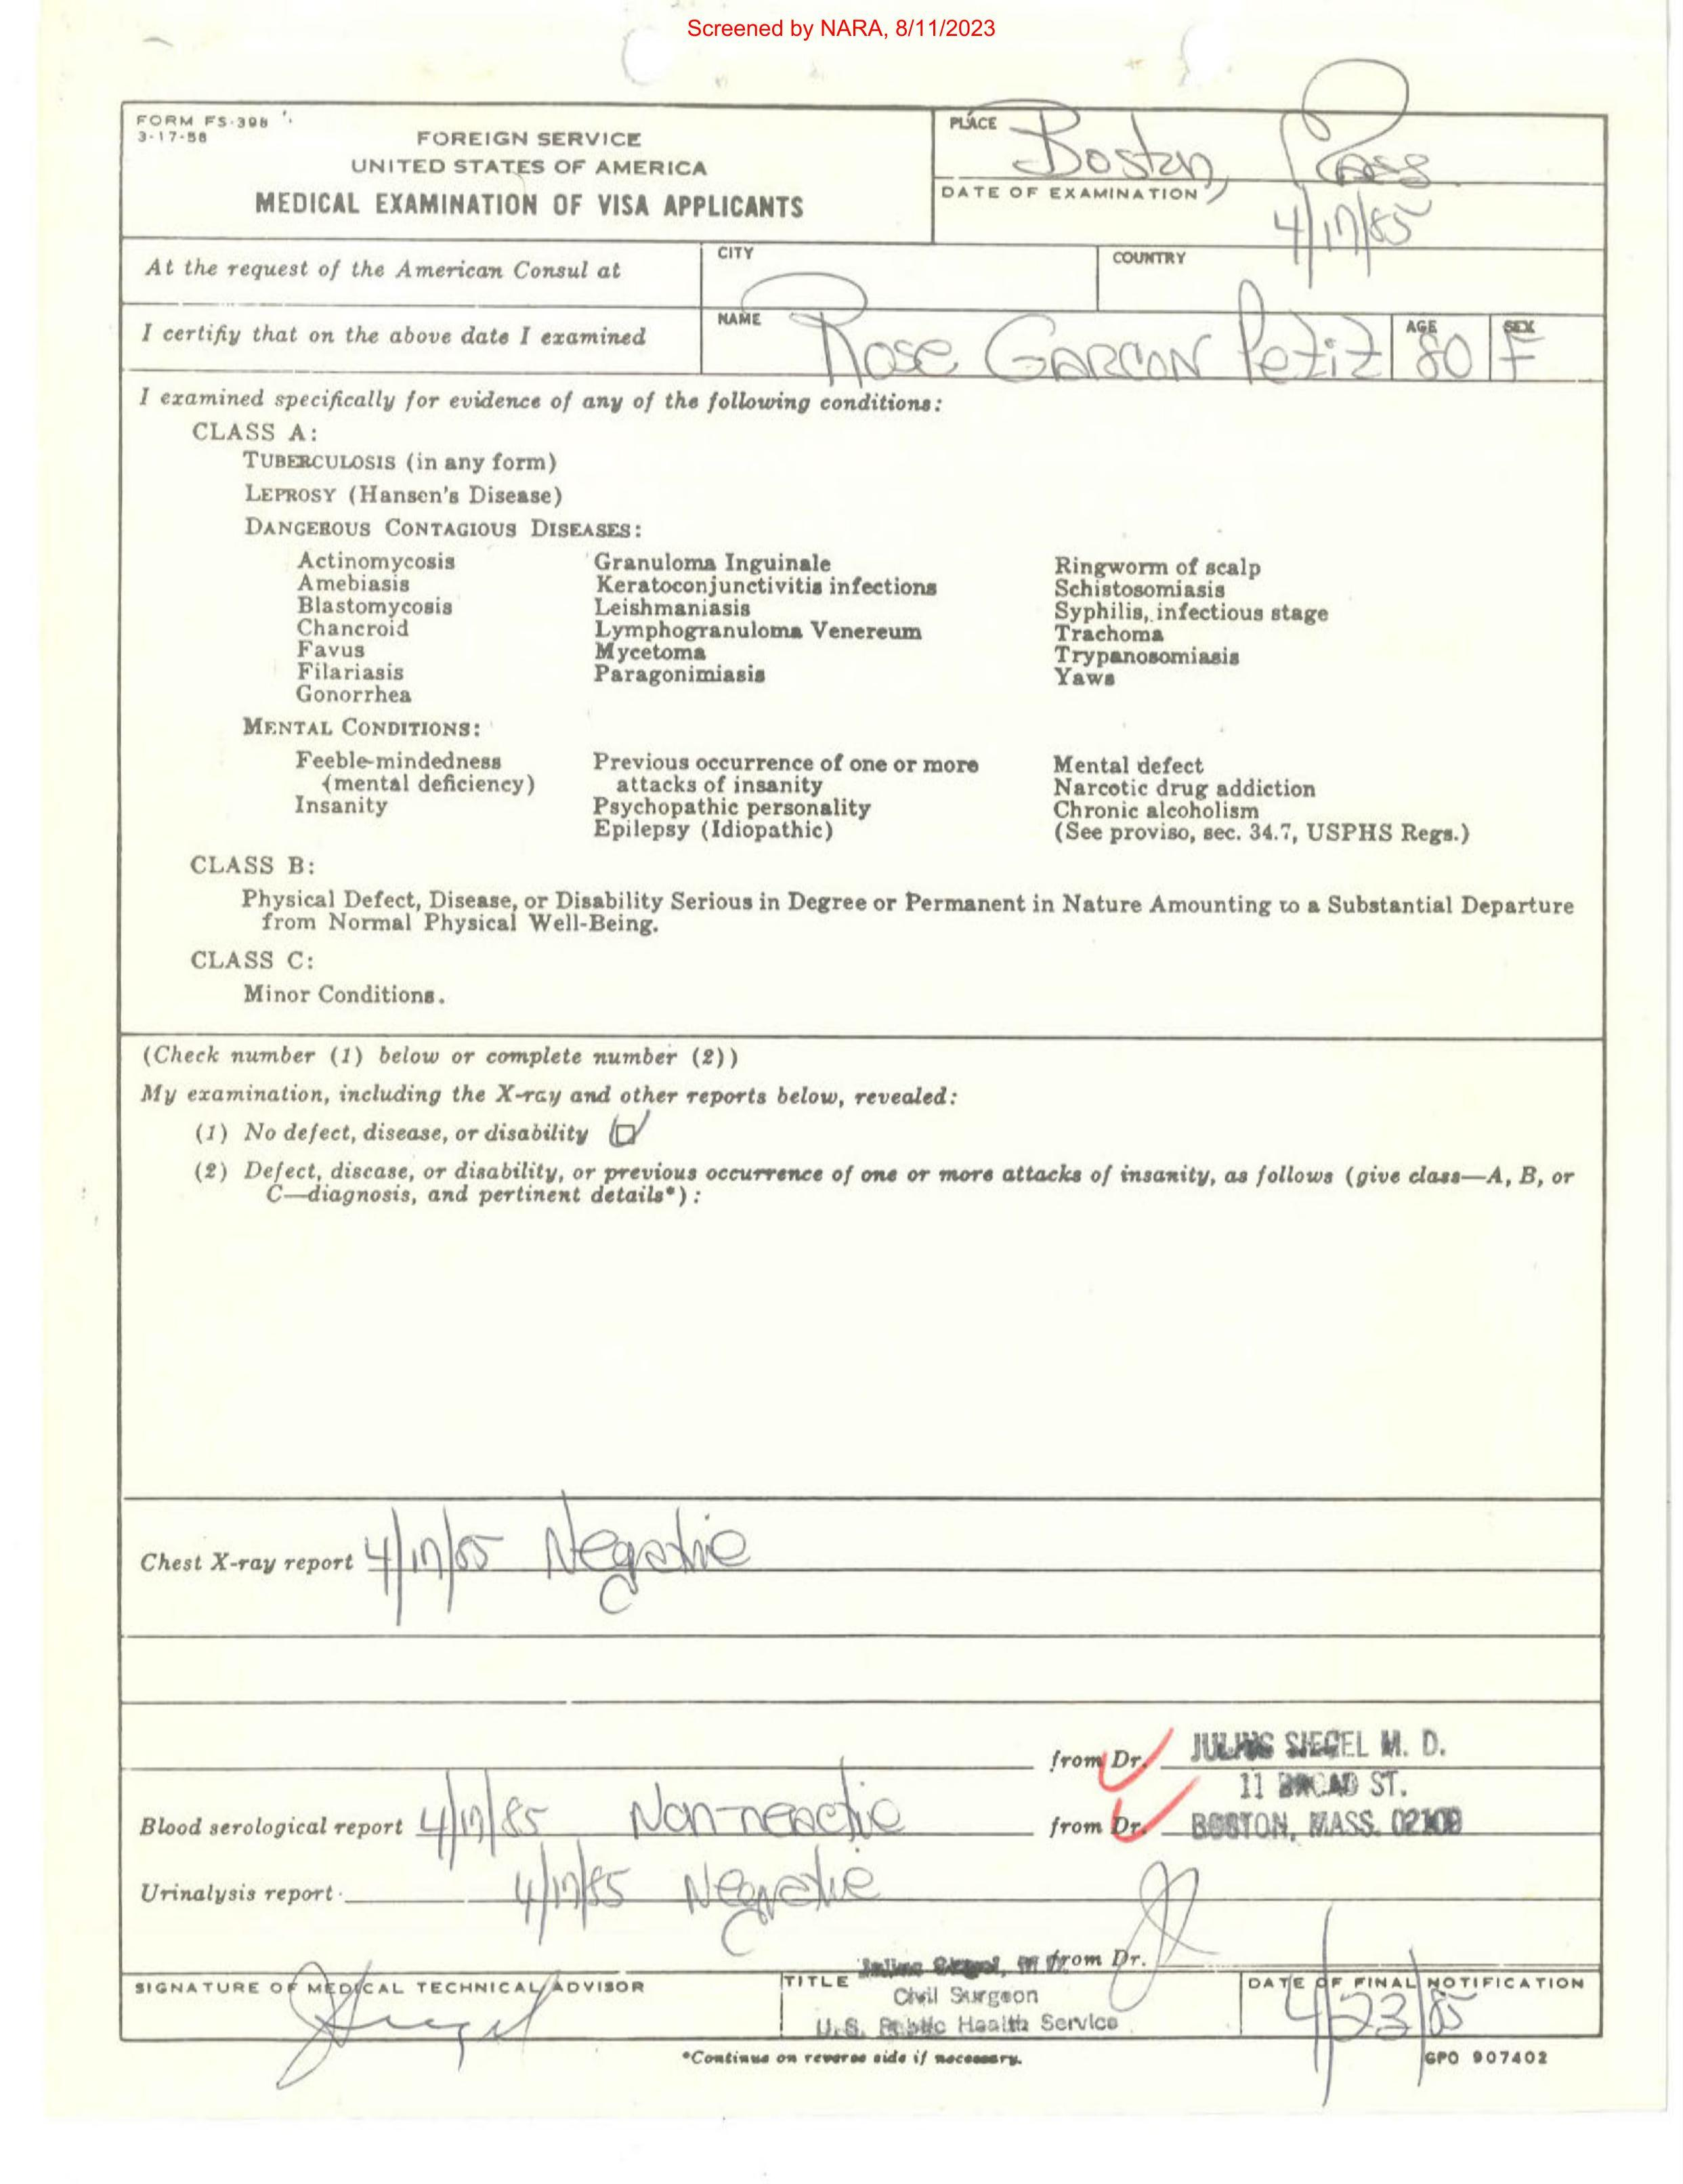 Screened by NARA, 8/11/2023
FORM FS-398
3-17-58
FOREIGN SERVICE
UNITED STATES OF AMERICA
MEDICAL EXAMINATION OF VISA APPLICANTS
PLACE Boston, Mass
DATE OF EXAMINATION
4/17/85
At the request of the American Consul at
CITY
COUNTRY
I certify that on the above date I examined
NAME Rose GARCON Petit
AGE 80
SEX F
I examined specifically for evidence of any of the following conditions:
CLASS A:
TUBERCULOSIS (in any form)
LEPROSY (Hansen's Disease)
DANGEROUS CONTAGIOUS DISEASES:
Actinomycosis
Amebiasis
Blastomycosis
Chancroid
Favus
Filariasis
Gonorrhea
Granuloma Inguinale
Keratoconjunctivitis infections
Leishmaniasis
Lymphogranuloma Venereum
Mycetoma
Paragonimiasis
Ringworm of scalp
Schistosomiasis
Syphilis, infectious stage
Trachoma
Trypanosomiasis
Yaws
MENTAL CONDITIONS:
Feeble-mindedness
(mental deficiency)
Insanity
Previous occurrence of one or more
attacks of insanity
Psychopathic personality
Epilepsy (Idiopathic)
Mental defect
Narcotic drug addiction
Chronic alcoholism
(See proviso, sec. 34.7, USPHS Regs.)
CLASS B:
Physical Defect, Disease, or Disability Serious in Degree or Permanent in Nature Amounting to a Substantial Departure
from Normal Physical Well-Being.
CLASS C:
Minor Conditions.
(Check number (1) below or complete number (2))
My examination, including the X-ray and other reports below, revealed:
(1) No defect, disease, or disability
(2) Defect, disease, or disability, or previous occurrence of one or more attacks of insanity, as follows (give class—A, B, or
C—diagnosis, and pertinent details*):
Chest X-ray report 4/17/85 Negative
from Dr. JULIUS SIEGEL M. D.
11 BROAD ST.
Blood serological report 4/17/85 Non-reactive from Dr. BOSTON, MASS. 02109
Urinalysis report 4/17/85 Negative
Julius Siegel, from Dr.
SIGNATURE OF MEDICAL TECHNICAL ADVISOR
TITLE
Civil Surgeon
U.S. Public Health Service
DATE OF FINAL NOTIFICATION
4/23/85
*Continue on reverse side if necessary.
GPO 907402